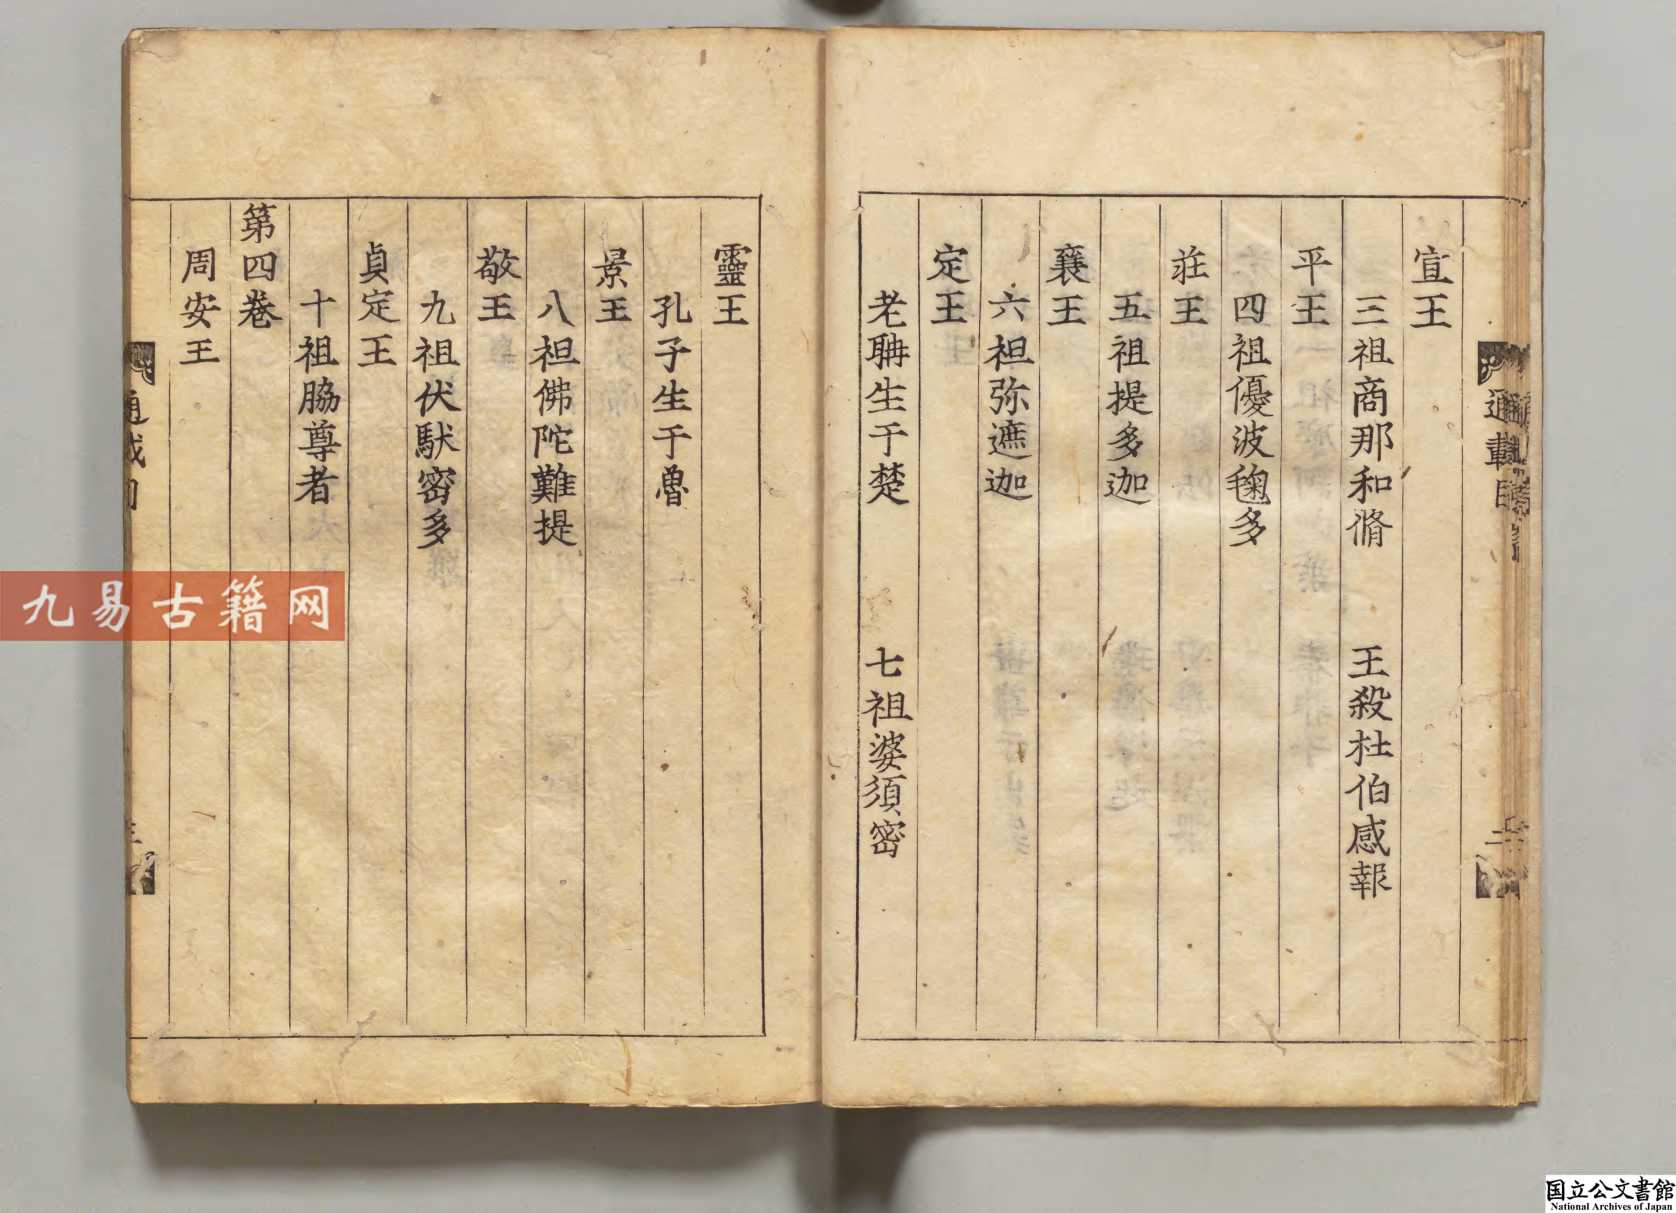 宣王
三祖商那和脩　王殺杜伯感報
平王
四祖優波毱多
莊王
五祖提多迦
襄王
六祖弥遮迦
定王
老聃生于楚　七祖婆須密
靈王
孔子生于魯
景王
八祖佛陀難提
敬王
九祖伏馱密多
貞定王
十祖脇尊者
第四卷
周安王
通載目
二
九易古籍网
国立公文書館
National Archives of Japan